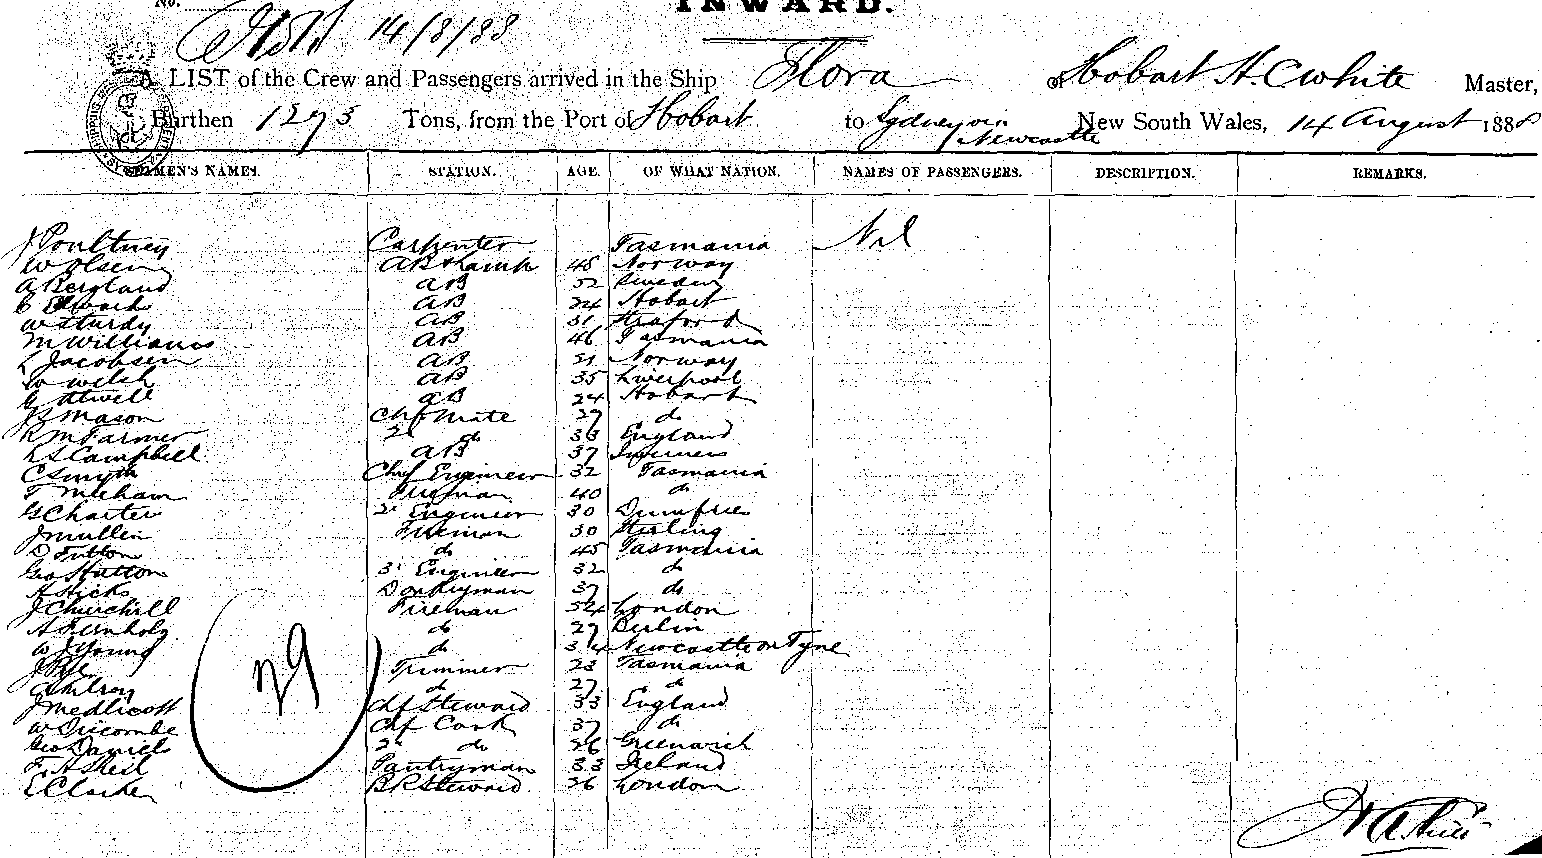 No.
INWARD.
14/8/88
A LIST of the Crew and Passengers arrived in the Ship Flora of Hobart H. C White Master,
Burthen 1273 Tons, from the Port of Hobart to Sydney via Newcastle New South Wales, 14 August 1888
SEAMEN'S NAMES. STATION. AGE. OF WHAT NATION. NAMES OF PASSENGERS. DESCRIPTION. REMARKS.
J Poultney Carpenter Tasmania Nil
W Olsen AB & Lamp 48 Norway
A Bergland AB 52 Sweden
C AB 24 Hobart
W Sturdy AB 31
M Williams AB 46 Tasmania
L Jacobsen AB 51 Norway
W Welsh AB 35 Liverpool
G Atwell AB 24 Hobart
JB Mason Chf Mate 29 do
R M Farmer 2d do 33 England
L S Campbell AB 37 Inverness
C Smyth Chief Engineer 32 Tasmania
T Meleham Fireman 40 do
G Charter 2d Engineer 30 Dumfries
J Mullen Fireman 30 Sterling
D Tutton do 45 Tasmania
Geo Hutton 3d Engineer 32 do
A Hicks Donkeyman 37 do
J Churchill Fireman 54 London
A Fernholz do 29 Berlin
W J Young do 34 Newcastle on Tyne
J Trimmer 23 Tasmania
do 27 do
J Medlicott Chf Steward 33 England
W Diccombe Chf Cook 37 do
Geo Daniels 2d do 26 Greenwich
F. A Sheil Pantryman 33 Ireland
E Clarke BR Steward 26 London
29